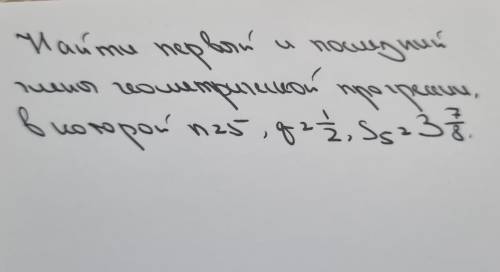 Найти первый и последний
члены геометрической прогрессии,
в которой n=5, q=1/2, S₅=3 7/8.